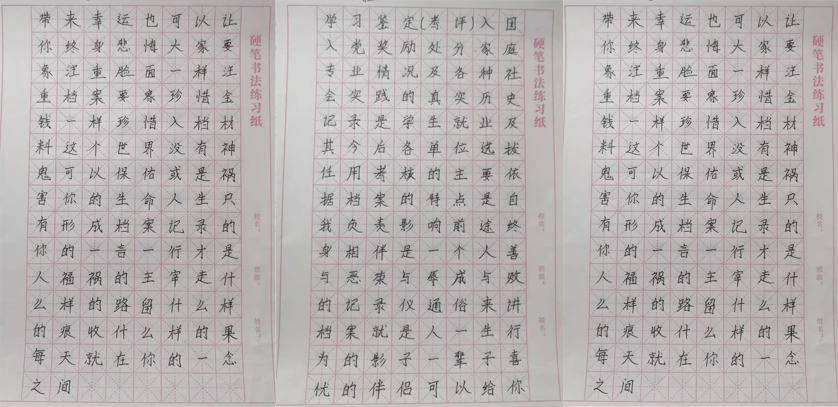 硬笔书法练习纸
带来幸运也可以让
你终身悲悔大家要
象汪重脸面一样汪
重档案要眷珍惜金
钱一样珍惜入档材
料这个世界没有神
鬼可以保佑或是祸
害你的生命人生只
有形成档案记录的
你的一言一行才是
人福祸的主宰走什
么样的路留什么样
的痕收什么样的果
每天就在你的一念
之间
硬笔书法练习纸
学习鉴定(考评)入团
入党奖励处分家庭
专业横况及各种社
会实践的真实历史
记录是学生就业及
其今后各单位选拔
任用考核的主要依
据档案的特点是自
我负责影响前途终
身相伴是一个人善
与恶荣与辱成与败
的记录仪通俗来讲
档案就是人一生行
为的影子一辈子喜
优的伴侣可以给你
硬笔书法练习纸
带来幸运也可以让
你终身悲悔大家要
象汪重脸面一样汪
重档案要眷珍惜金
钱一样珍惜入档材
料这个世界没有神
鬼可以保佑或是祸
害你的生命人生只
有形成档案记录的
你的一言一行才是
人福祸的主宰走什
么样的路留什么样
的痕收什么样的果
每天就在你的一念
之间